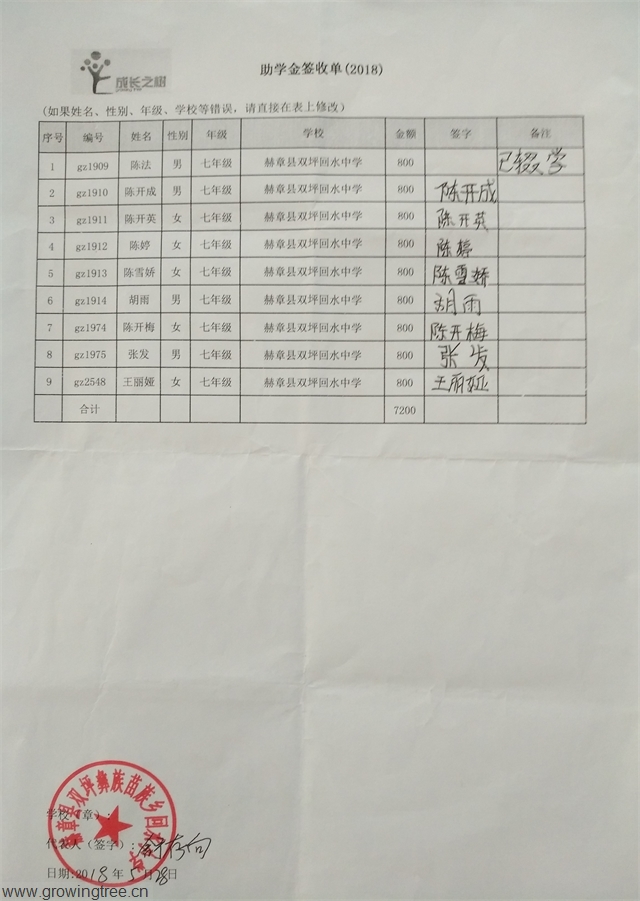 成长之树
助学金签收单(2018)
(如果姓名、性别、年级、学校等错误,请直接在表上修改)
序号 编号 姓名 性别 年级 学校 金额 签字 备注
1 gz1909 陈法 男 七年级 赫章县双坪回水中学 800 已辍学
2 gz1910 陈开成 男 七年级 赫章县双坪回水中学 800 陈开成
3 gz1911 陈开英 女 七年级 赫章县双坪回水中学 800 陈开英
4 gz1912 陈婷 女 七年级 赫章县双坪回水中学 800 陈婷
5 gz1913 陈雪娇 女 七年级 赫章县双坪回水中学 800 陈雪娇
6 gz1914 胡雨 男 七年级 赫章县双坪回水中学 800 胡雨
7 gz1974 陈开梅 女 七年级 赫章县双坪回水中学 800 陈开梅
8 gz1975 张发 男 七年级 赫章县双坪回水中学 800 张发
9 gz2548 王丽娅 女 七年级 赫章县双坪回水中学 800 王丽娅
合计 7200
赫章县双坪彝族苗族乡回水中学
学校(章):
代表人(签字):
日期:2018年5月28日
www.growingtree.cn